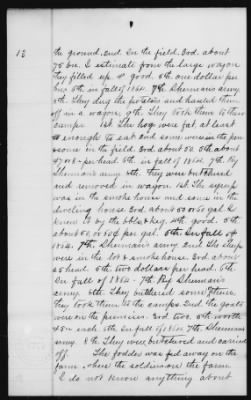 12
the ground, 2nd. In the field, 3rd. about
75 bu. I estimate from the large wagon
they filled up 4th good. 5th one dollar per
bu, 6th in fall of 1864. 7th Shermans army.
8th. They dug the potatoes and hauled them
off in a wagon. 9th They took them to their
camps. 1st. The hogs were fat at least
enough to eat and some were in the pen
some in the field. 3rd about 50. 5th about
per head. 6th in fall of 1864. 7th By
Shermans army. 8th. They were butchered
and removed in wagon. 1st. The syrup
was in the smoke house and some in the
dwelling house. 3rd about 50 or 60 gal. I
knew it by the bbls & keg. 4th good. 5th
about 50¢ per gal. 6th In fall of
1864. 7th Shermans army. 2nd The sheep
were in the lot & smoke house. 3rd about
25 head. 5th two dollars per head. 6th
In fall of 1864. 7th By Shermans
army. 8th. They butchered some there,
they took them to the camps. 2nd. The goats
were on the premises. 3rd two. 5th worth
each. 6th In fall of 1864. 7th Shermans
army. 8th They were butchered and carried
off. The fodder was fed away on the
farm, where the soldiers on the farm.
I do not know anything about